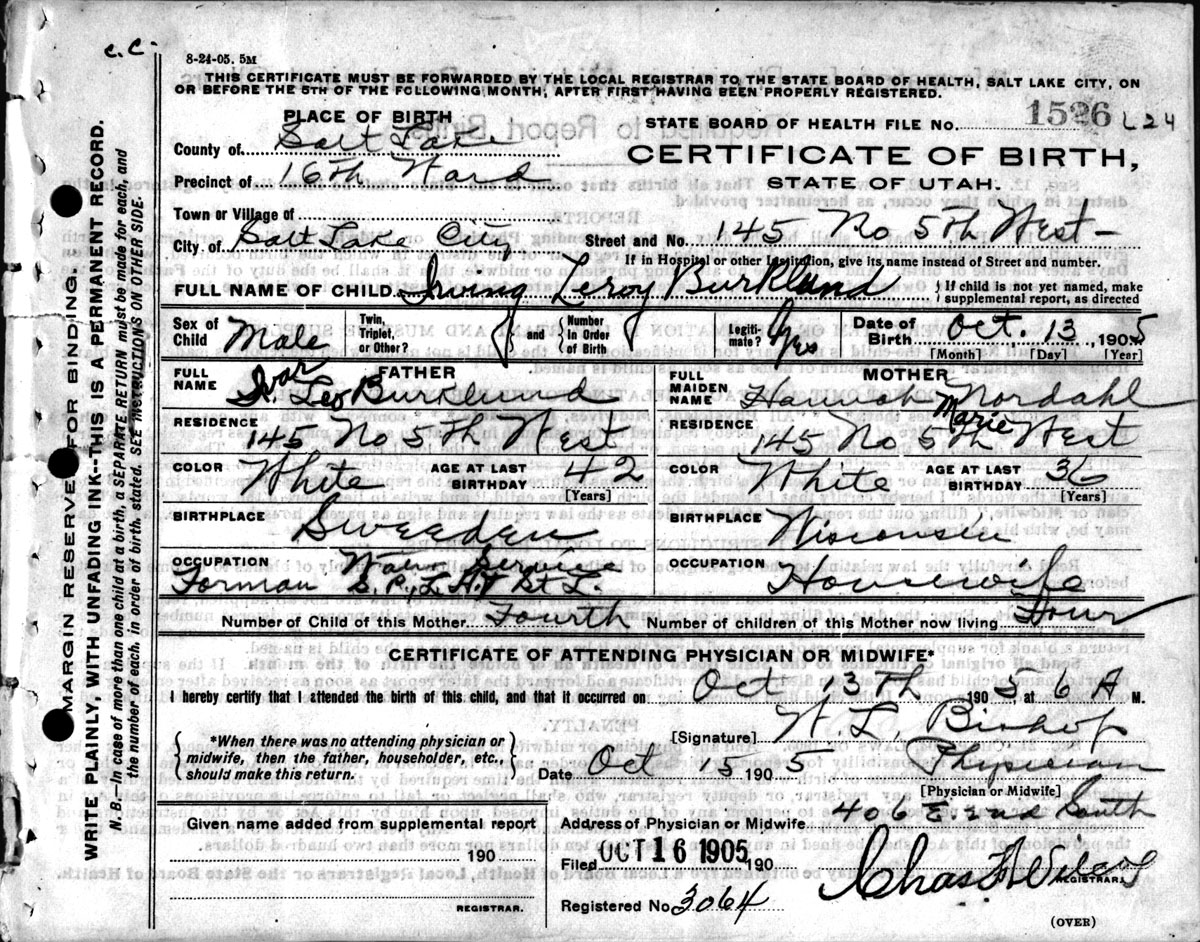 c.c.
8-24-05. 5M
THIS CERTIFICATE MUST BE FORWARDED BY THE LOCAL REGISTRAR TO THE STATE BOARD OF HEALTH, SALT LAKE CITY, ON
OR BEFORE THE 5TH OF THE FOLLOWING MONTH, AFTER FIRST HAVING BEEN PROPERLY REGISTERED.
PLACE OF BIRTH
STATE BOARD OF HEALTH FILE NO. 1526 L24
County of Salt Lake
CERTIFICATE OF BIRTH,
Precinct of 16th Ward
STATE OF UTAH.
Town or Village of
City of Salt Lake City Street and No. 145 No 5th West
If in Hospital or other Institution, give its name instead of Street and number.
FULL NAME OF CHILD Irving Leroy Burklund { If child is not yet named, make
supplemental report, as directed
Sex of Child Male Twin, Triplet, or Other? } and { Number in Order of Birth Legiti-mate? Yes Date of Birth Oct. 13, 1905
[Month] [Day] [Year]
FATHER
FULL NAME Ivar Leo Burklund
RESIDENCE 145 No 5th West
COLOR White AGE AT LAST BIRTHDAY 42
[Years]
BIRTHPLACE Sweeden
OCCUPATION Forman Service
MOTHER
FULL MAIDEN NAME Hannah Marie Nordahl
RESIDENCE 145 No 5th West
COLOR White AGE AT LAST BIRTHDAY 36
[Years]
BIRTHPLACE Wisconsin
OCCUPATION Housewife
Number of Child of this Mother Fourth Number of children of this Mother now living Four
CERTIFICATE OF ATTENDING PHYSICIAN OR MIDWIFE*
I hereby certify that I attended the birth of this child, and that it occurred on Oct 13th 1905, at 6 A M.
{ *When there was no attending physician or
midwife, then the father, householder, etc.,
should make this return. }
[Signature] W. L. Bishop
Date Oct 15 1905 Physician
[Physician or Midwife]
Given name added from supplemental report
190
REGISTRAR.
Address of Physician or Midwife 406 E 2nd South
Filed OCT 16 1905 190
Chas F Wilcox
REGISTRAR.
Registered No. 3064
(OVER)
MARGIN RESERVED FOR BINDING.
WRITE PLAINLY, WITH UNFADING INK--THIS IS A PERMANENT RECORD.
N. B.—In case of more than one child at a birth, a SEPARATE RETURN must be made for each, and
the number of each, in order of birth, stated. SEE INSTRUCTIONS ON OTHER SIDE.